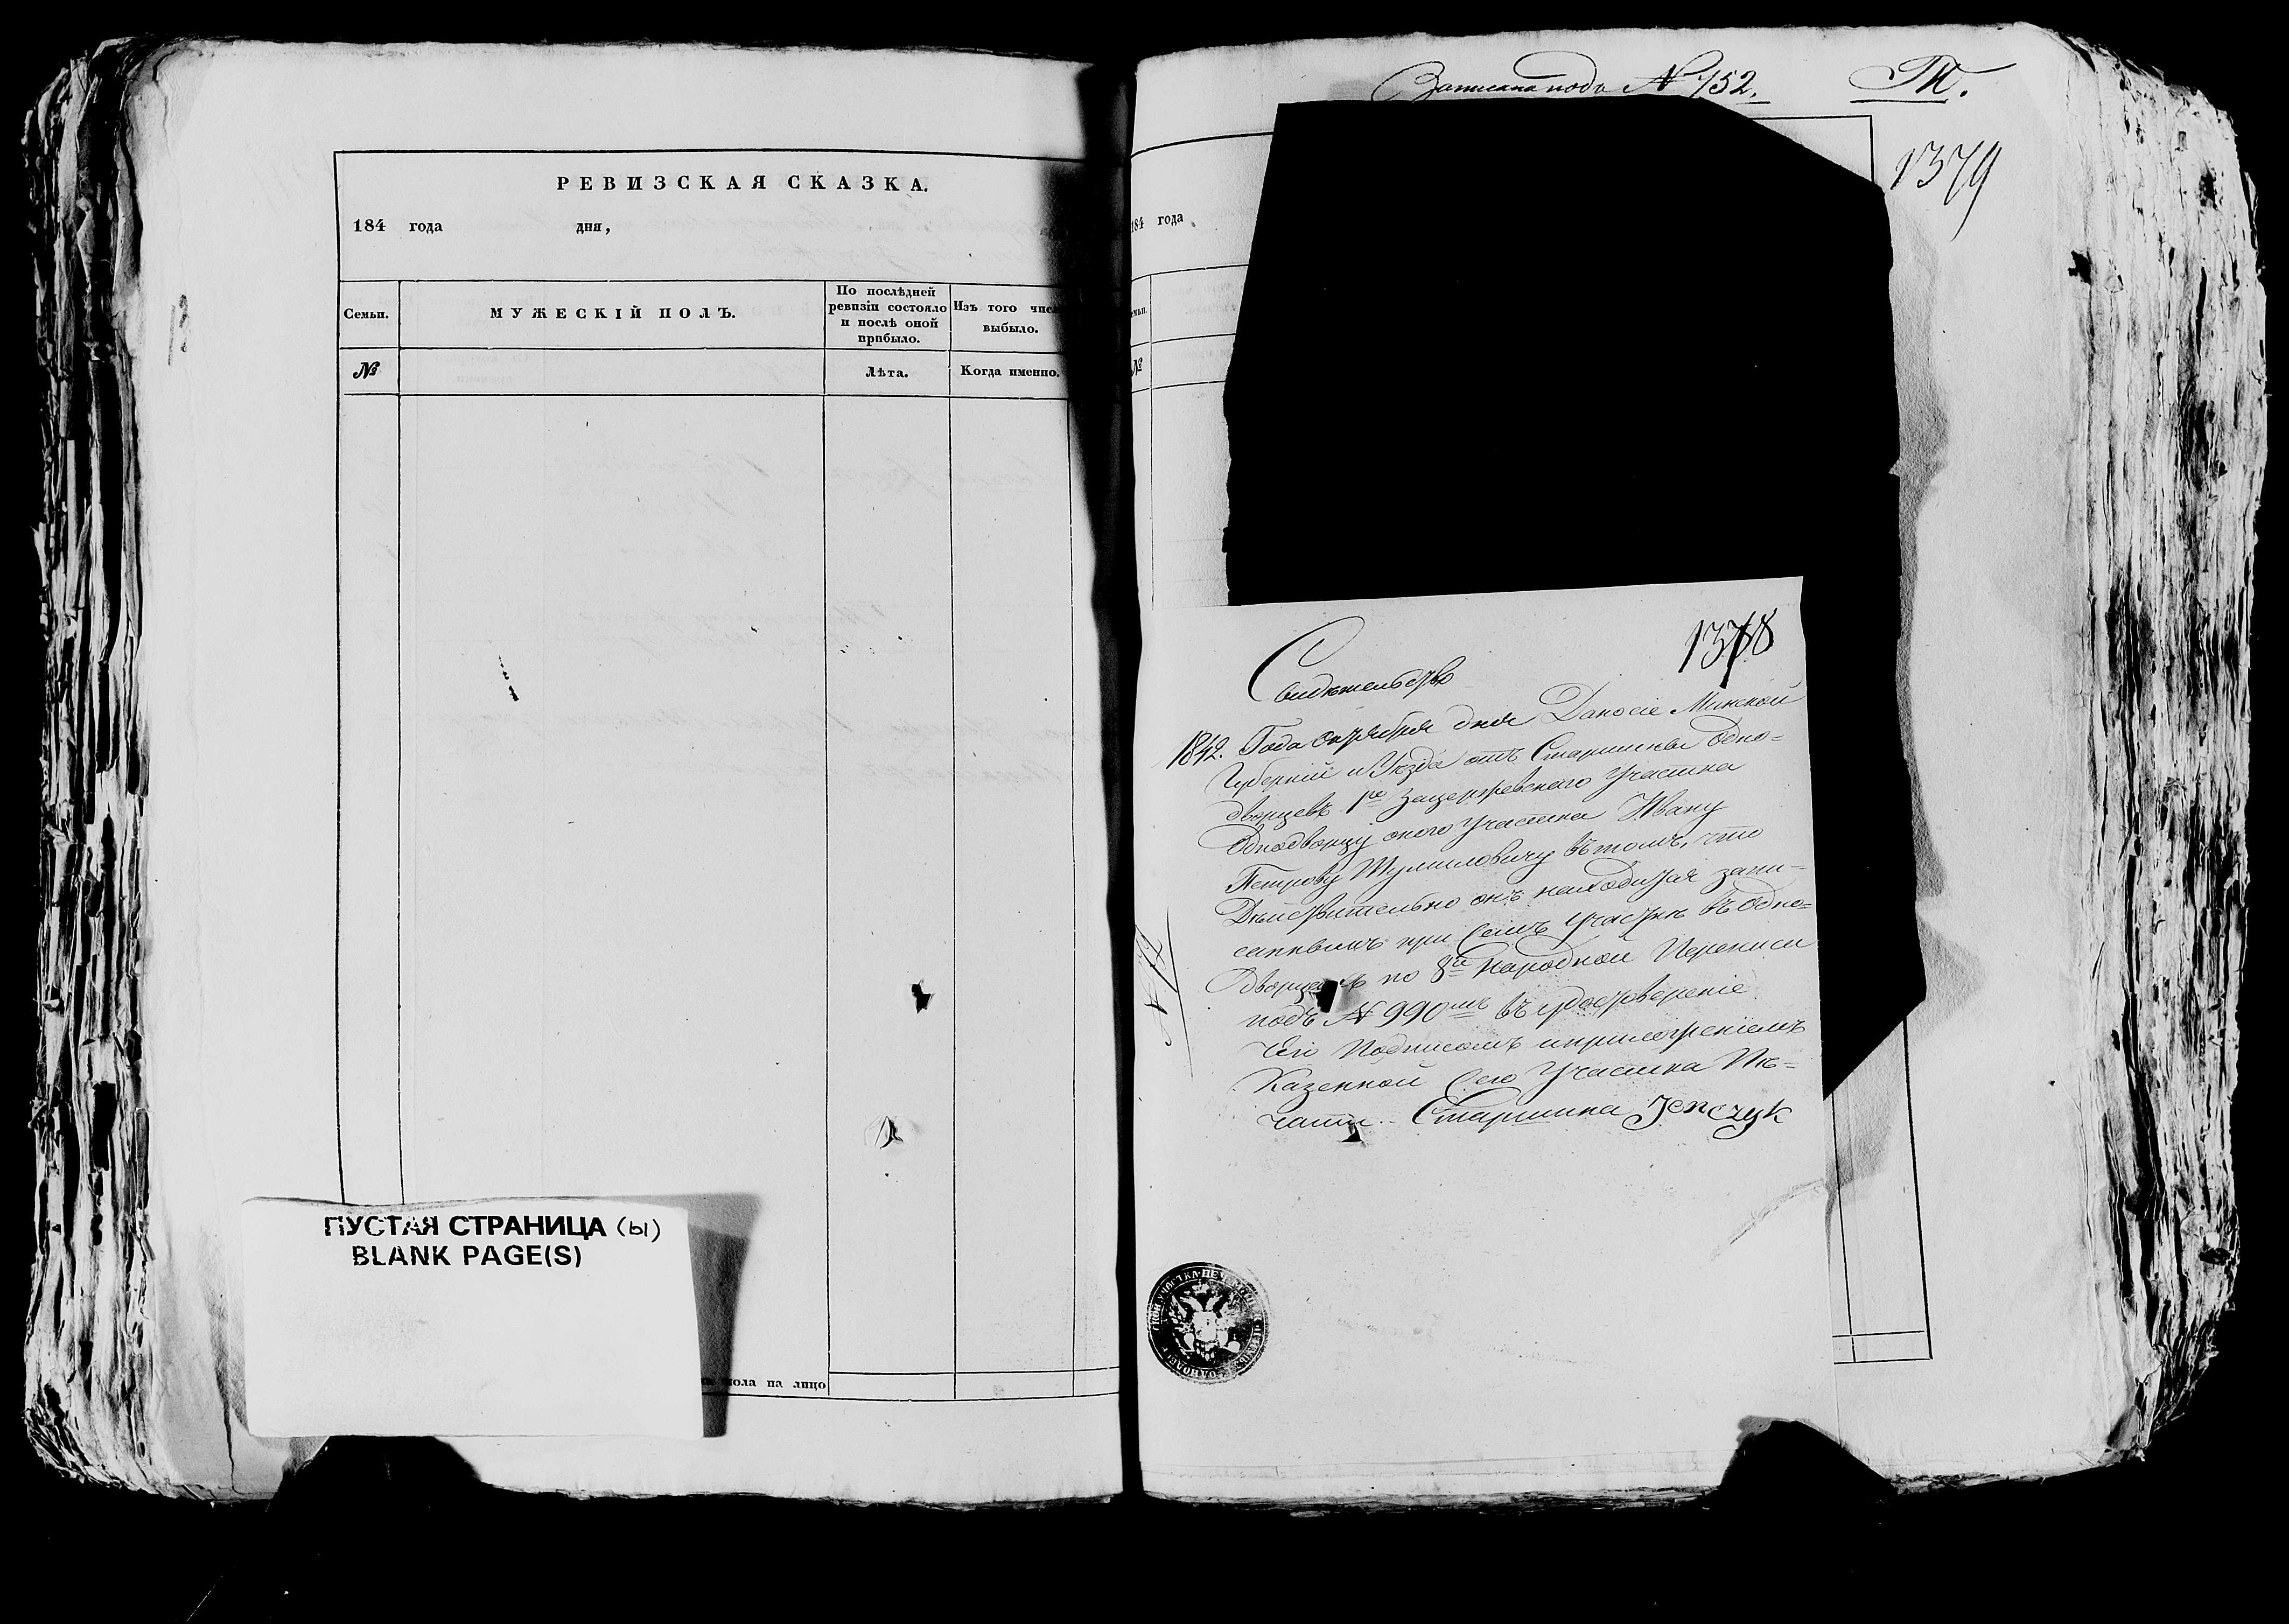 РЕВИЗСКАЯ СКАЗКА.
184 года дня,
Семьи.
МУЖЕСКІЙ ПОЛЪ.
По послѣдней ревизіи состояло и послѣ оной прибыло.
Изъ того числа выбыло.
№
Лѣта.
Когда именно.
пола на лицо
ПУСТАЯ СТРАНИЦА (Ы)
BLANK PAGE(S)
Записана подъ № 752.
1379
184 года
№
1378
Свидѣтельство
1842. Года октября дня Даносіе Минской
Губерніи и Уѣзда отъ Старшины Одно-
дворцевъ 1го участка
Однодворцу оного участка Ивану
Петрову Шумиловичу въ томъ, что
Дѣйствительно онъ находится запи-
саннымъ при семъ участкѣ въ Одно-
дворцахъ по 8й Народной Переписи
подъ № 990мъ въ удостовереніе
чего Подписомъ и приложеніемъ
Казенной сего участка Пѣ-
чати.. Старшина